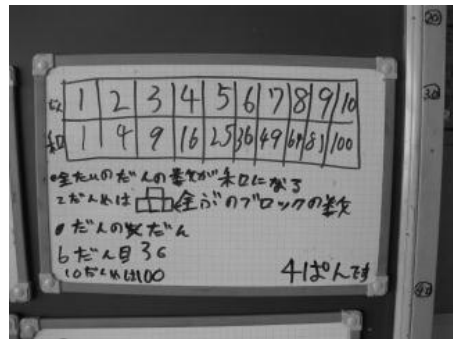 だん 1 2 3 4 5 6 7 8 9 10
和 1 4 9 16 25 36 49 64 81 100
•全たいのだんの数が和になる
2だんめは 全ぶのブロックの数
だんの数だん
6だん目36
10だんめは100
4ぱんです
20
30
40